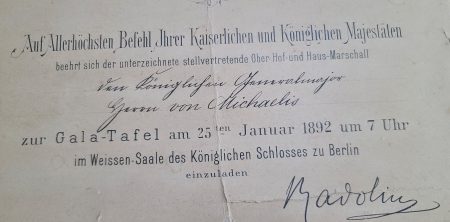 Auf Allerhöchsten Befehl Ihrer Kaiserlichen und Königlichen Majestäten
beehrt sich der unterzeichnete stellvertretende Ober-Hof-und Haus-Marschall
den Königlichen Generalmajor
Herrn von Michaelis
zur Gala-Tafel am 25ten Januar 1892 um 7 Uhr
im Weissen-Saale des Königlichen Schlosses zu Berlin
einzuladen
Radolin